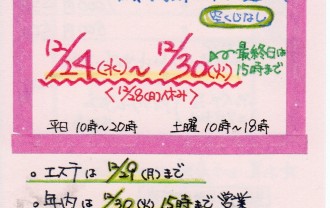 空くじなし
12/24(水)~12/30(火)
最終日は
15時まで
<12/28(日)休み>
平日 10時~20時 土曜 10時~18時
。エステは 12/29(月)まで
。年内は 12/30(火) 15時まで営業